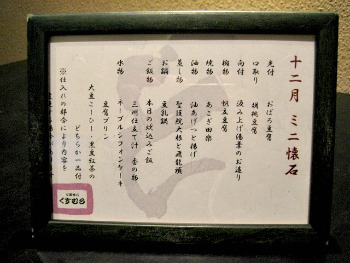 十二月 ミニ懐石
先付 おぼろ豆腐
口取り 胡桃豆腐
向付 汲み上げ湯葉のお造り
椀物 帆立豆腐
焼物 あこぎ田楽
油物 油あげっと揚げ
蒸し物 聖護院大根と飛龍頭
お鍋 豆乳鍋
ご飯物 本日の炊込みご飯
三州仕立て汁 香の物
水物 メープルシフォンケーキ
豆腐プリン
大豆こーひー・黒豆紅茶の
どちらか一品付
※仕入れの都合により内容を
くすむら